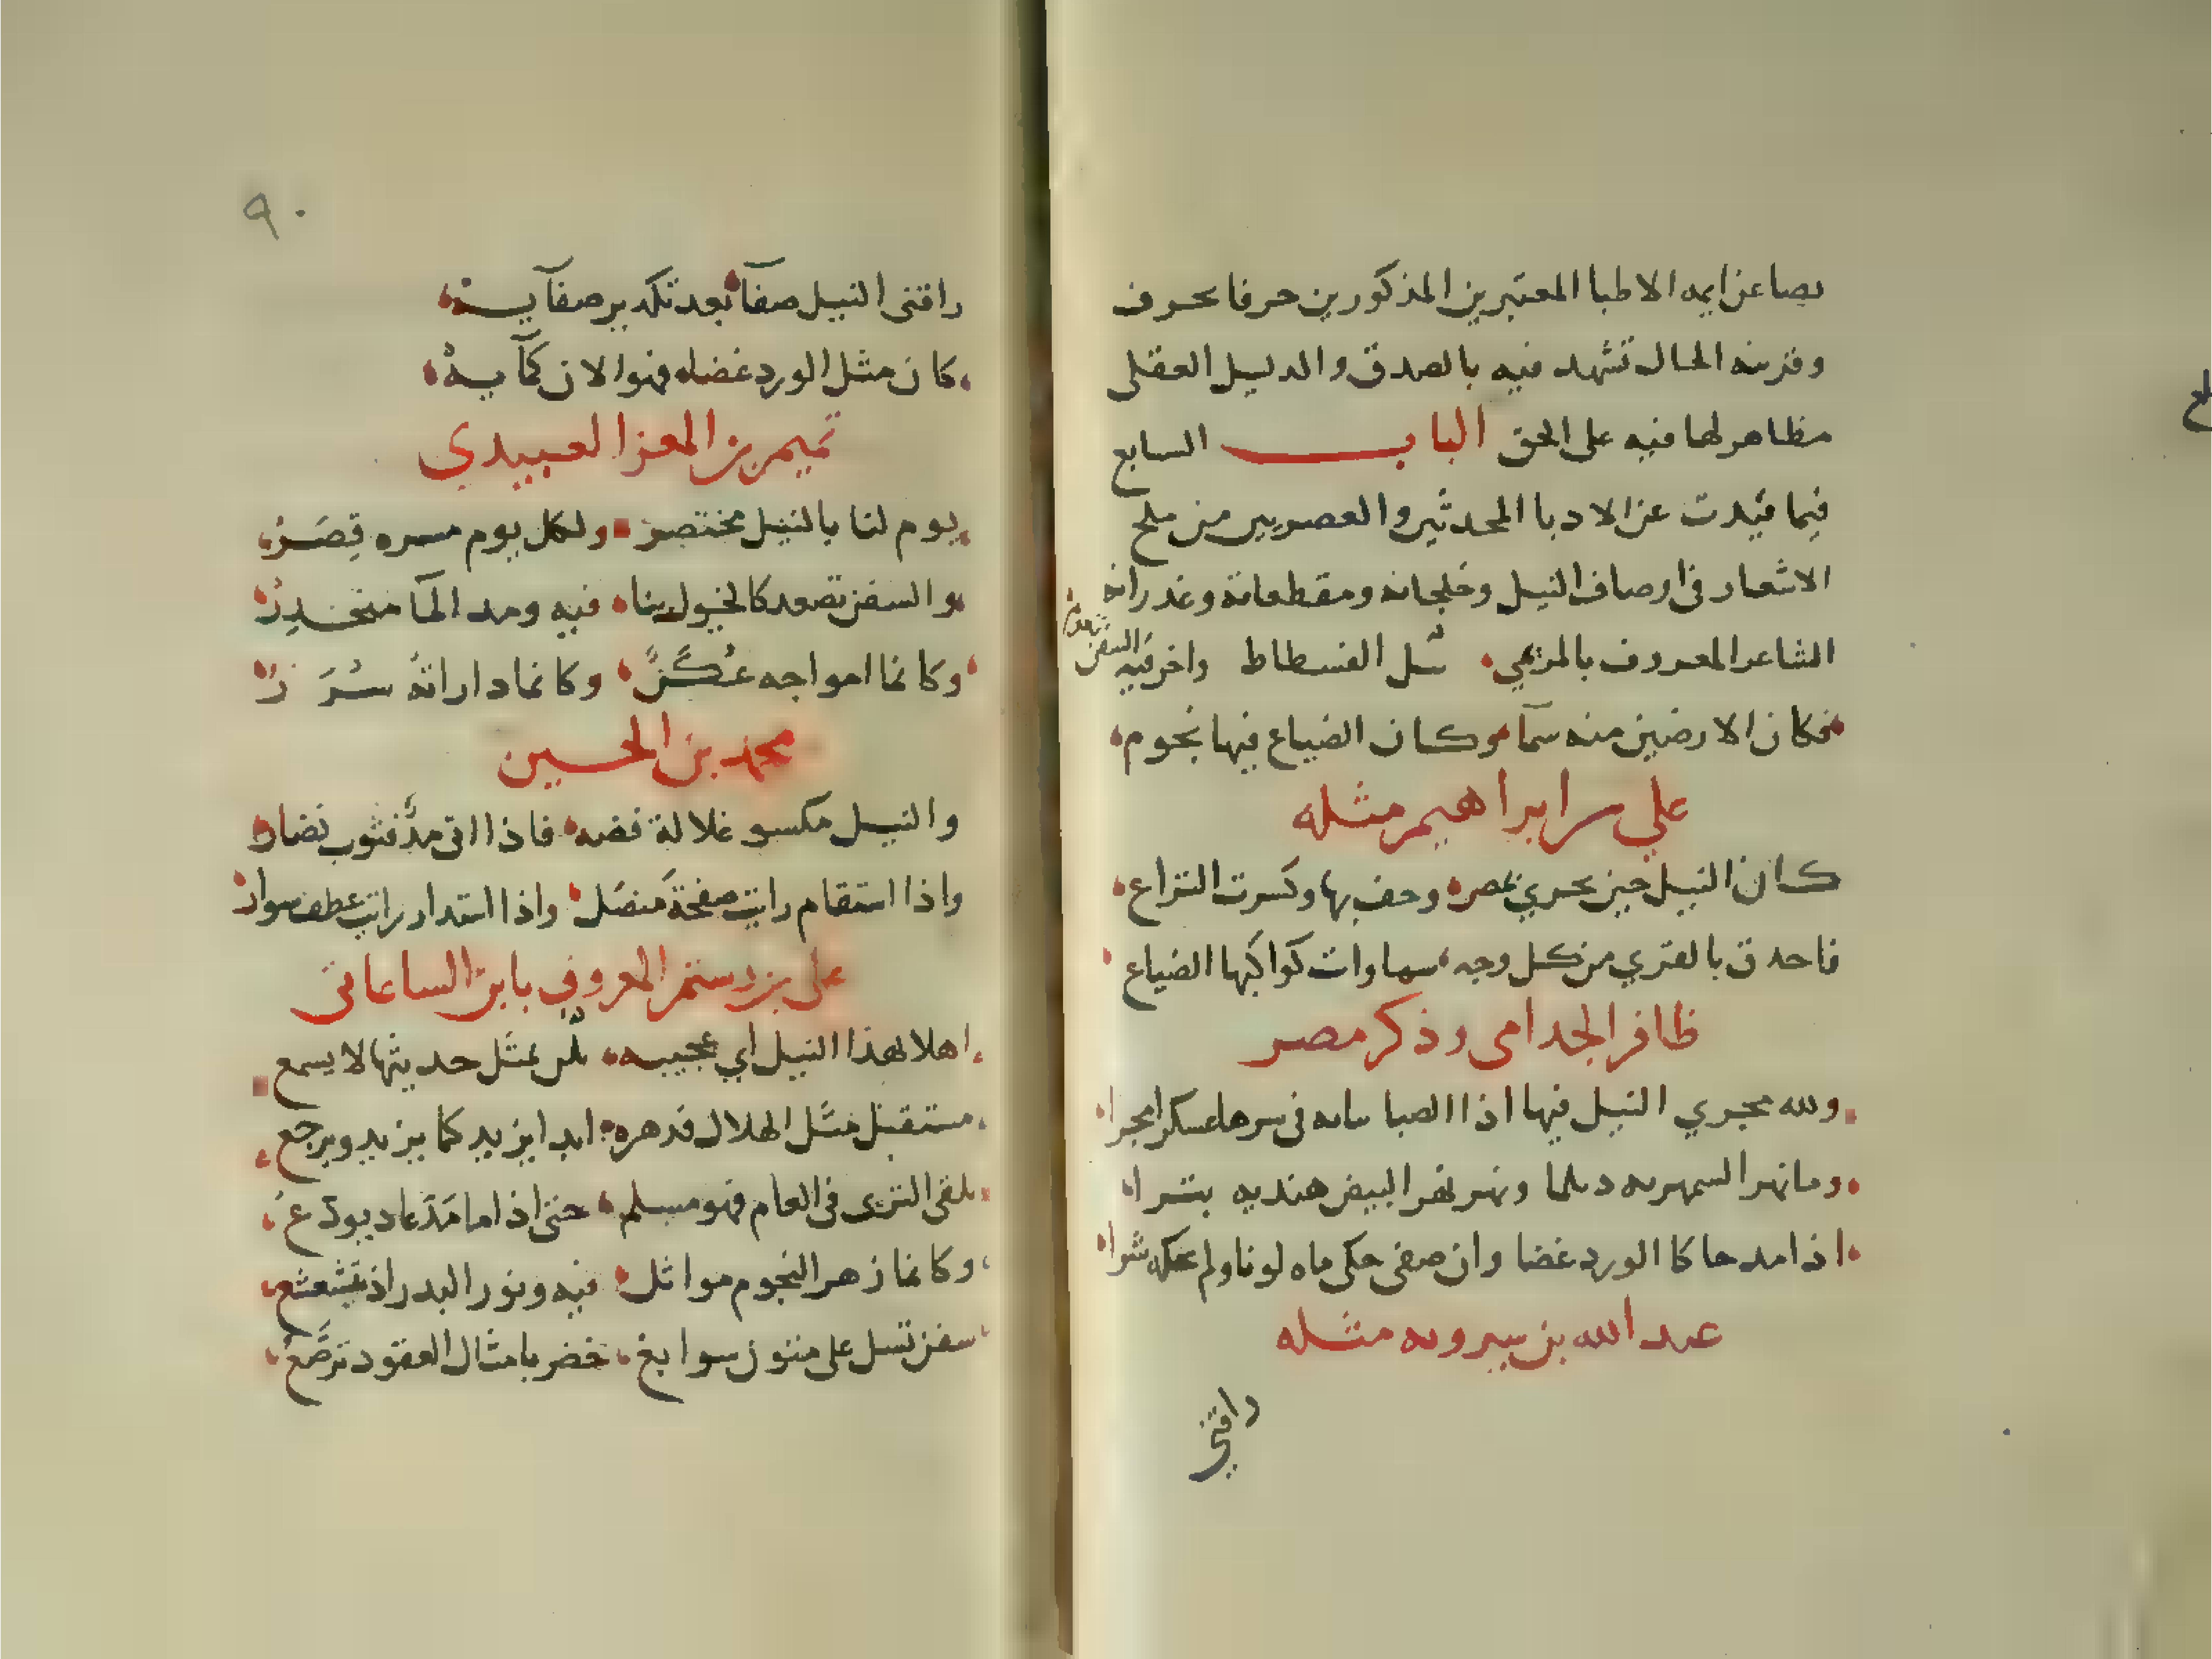 نصا عن ايمه الاطبا المعتبرين المذكورين حرفا بحرف
وقرينه الحال تشهد فيه بالصدق والدليل العقلى
مظاهر لها فيه على الحق الباب السابع
فيما قيدت عن الادبا المحدثين والعصريين من ملح
الاشعار فى اوصاف النيل وخلجانه ومقطعاته وغدرانه
الشاعر المعروف بالمرنمي شل الفسطاط واخر فيه السفن
فكان الارضين منه سمآ وكان الضياع فيها نجوم
علي بن ابراهيم مثله
كان النيل حين يجري بمصر وحف بها وكسرت التراع
فاحدق بالقري من كل وجه سماوات كواكبها الضياع
ظافر الجدامى وذكر مصر
ولله مجري النيل فيها اذا الصبا فى سرها عسكرا مجرا
اذا مد حاكا الورد غضا وان صفى حكى ماه لونا ولم يحكه شرا
عبد الله بن مثله
راقنى
٩٠
راقنى النيل صفآ بعد تكدير صفآيه
كان مثل الورد غضا فهو الان كمآيه
تميم بن المعز العبيدي
يوم لنا بالنيل مختصر ولكل يوم مسره قصر
والسفن تصعد كالخيول بنا فيه ومد المآ منحدر
وكانما امواجه عكن وكانما داراته سرر
محمد بن الحسين
والنيل مكسو غلالة فضه فاذا اتى مد فثوب نضار
واذا استقام رايت صفحة منصل واذا استدار رايت عطف سوار
على بن رستم المعروف بابن الساعاتى
اهلا لهذا النيل أي عجيبه بمثل حديثها لا يسمع
مستقبل مثل الهلال فدهره ابدا يزيد كما يزيد ويرجع
يلقى الثرى فى العام فهو مسلم حتى اذا ما مد عاد يودع
وكانما زهر النجوم مواثل فيه ونور البدر اذ يتشعشع
سفن تسل على متون سوابغ خضر بامثال العقود ترصع